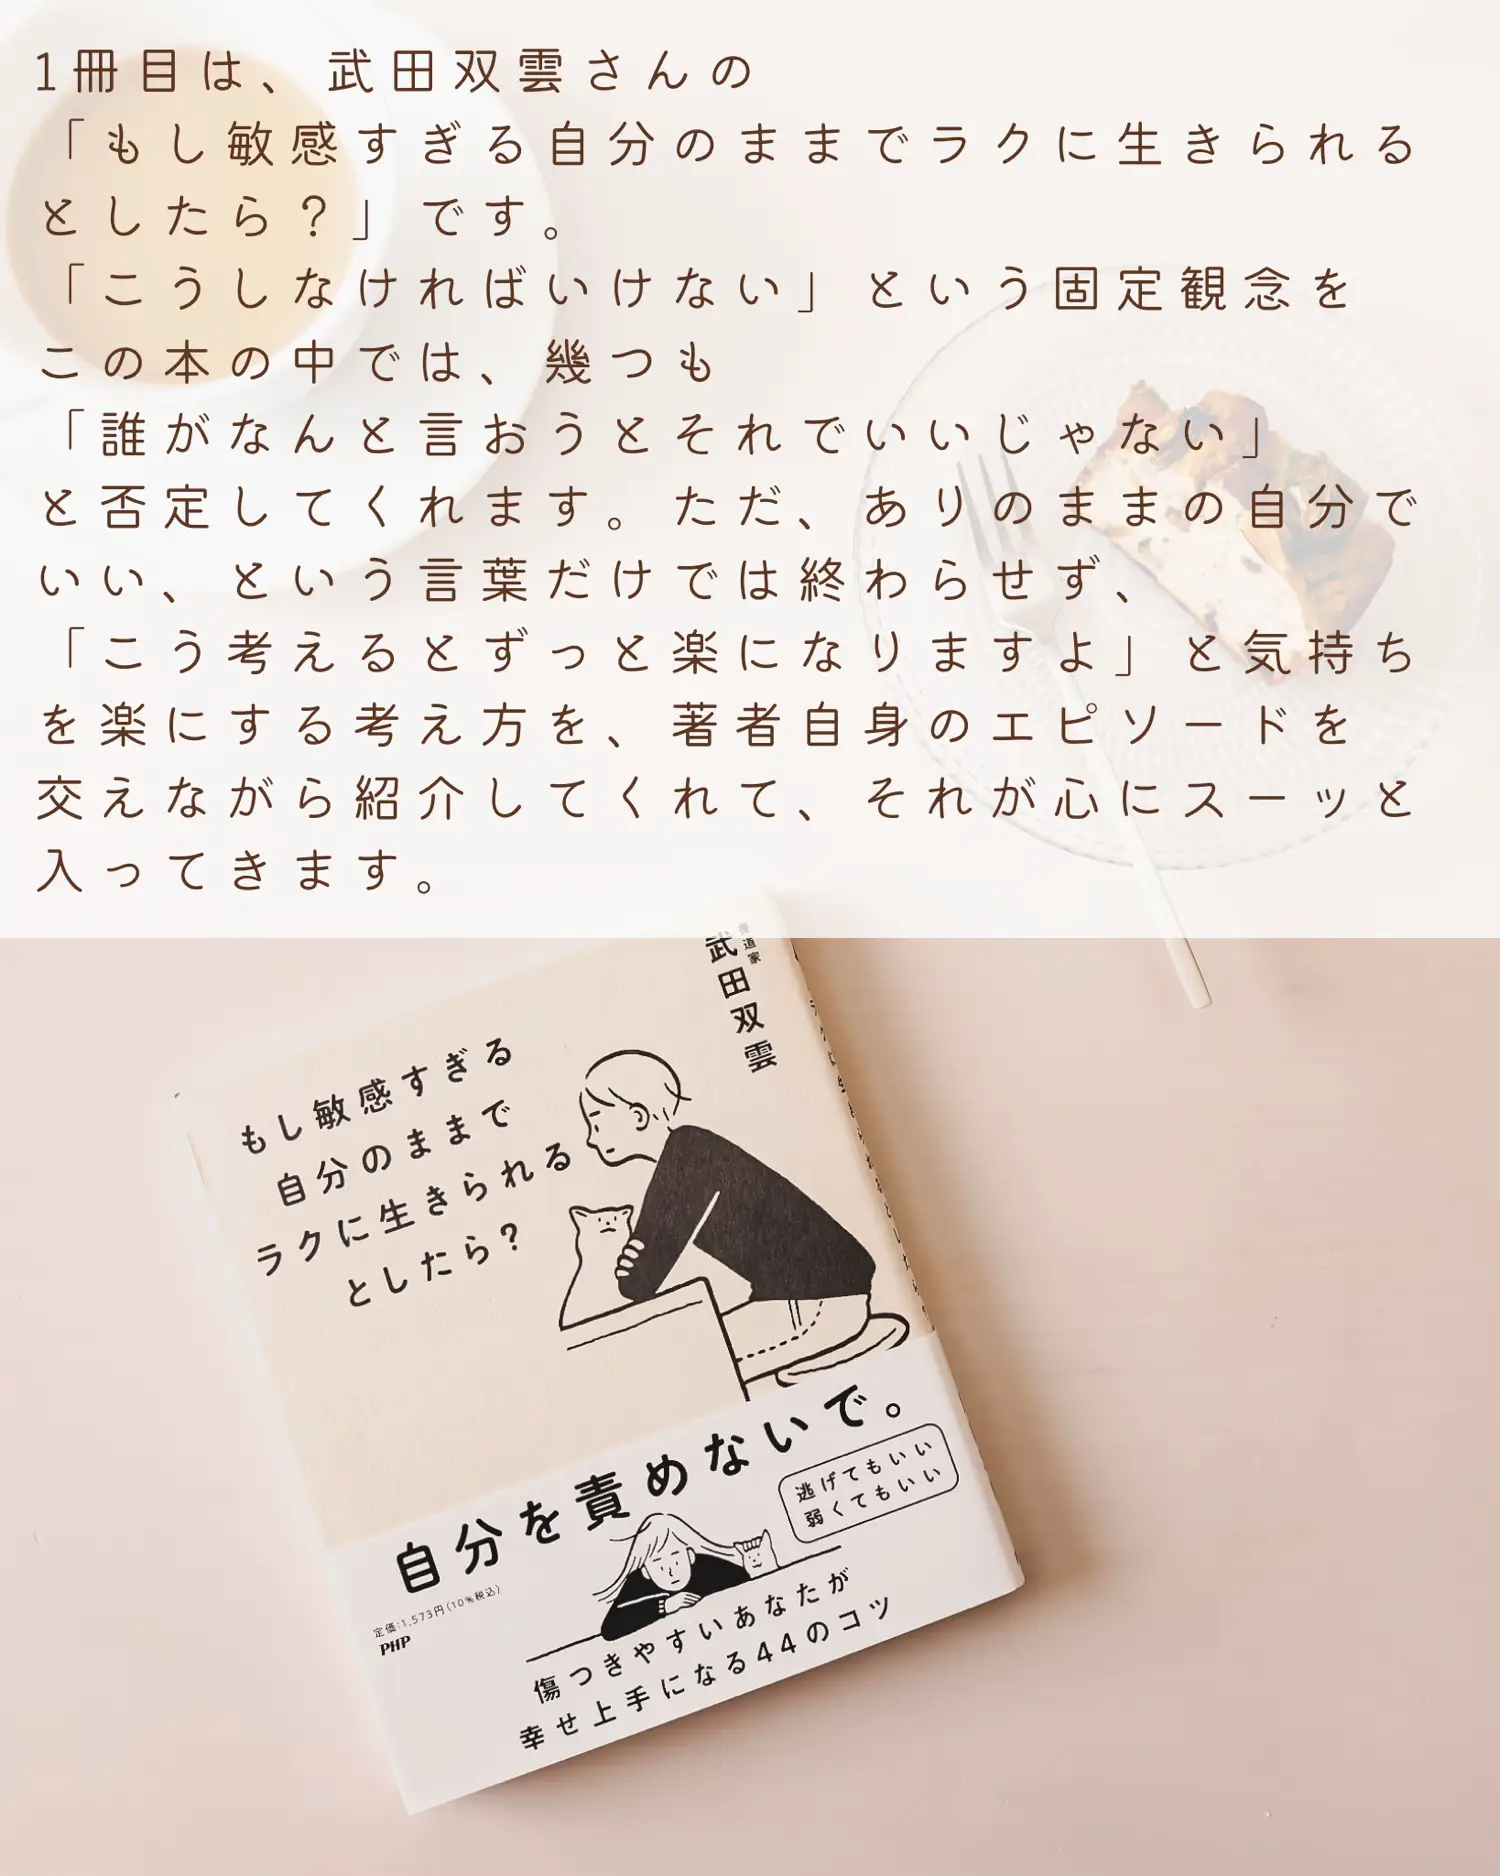 1冊目は、武田双雲さんの
「もし敏感すぎる自分のままでラクに生きられる
としたら？」です。
「こうしなければいけない」という固定観念を
この本の中では、幾つも
「誰がなんと言おうとそれでいいじゃない」
と否定してくれます。ただ、ありのままの自分で
いい、という言葉だけでは終わらせず、
「こう考えるとずっと楽になりますよ」と気持ち
を楽にする考え方を、著者自身のエピソードを
交えながら紹介してくれて、それが心にスーッと
入ってきます。
書道家
武田双雲
もし敏感すぎる
自分のままで
ラクに生きられる
としたら?
自分を責めないで。
逃げてもいい
弱くてもいい
定価:1,573円(10%税込)
PHP
傷つきやすいあなたが
幸せ上手になる44のコツ